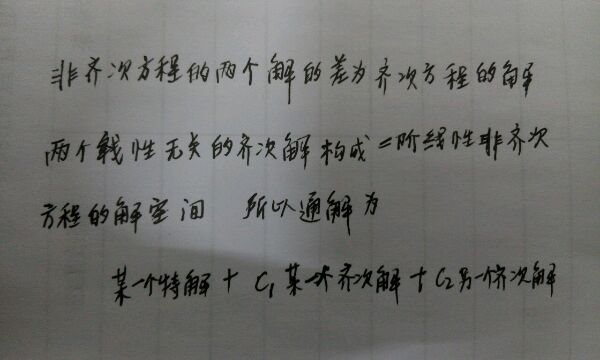 非齐次方程的两个解的差为齐次方程的解
两个线性无关的齐次解构成二阶线性非齐次
方程的解空间 所以通解为
某一个特解 + C₁某一个齐次解 + C₂另一个齐次解